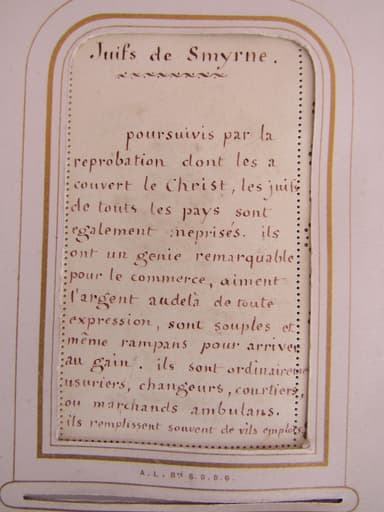 Juifs de Smyrne.
poursuivis par la
reprobation dont les a
couvert le Christ, les juifs
de touts les pays sont
egalement meprises. ils
ont un genie remarquable
pour le commerce, aiment
l'argent audela de toute
expression, sont souples et
même rampans pour arriver
au gain. ils sont ordinairement
usuriers, changeurs, courtiers,
ou marchands ambulans.
ils remplissent souvent de vils emplois.
A. L. Bté S.G.D.G.